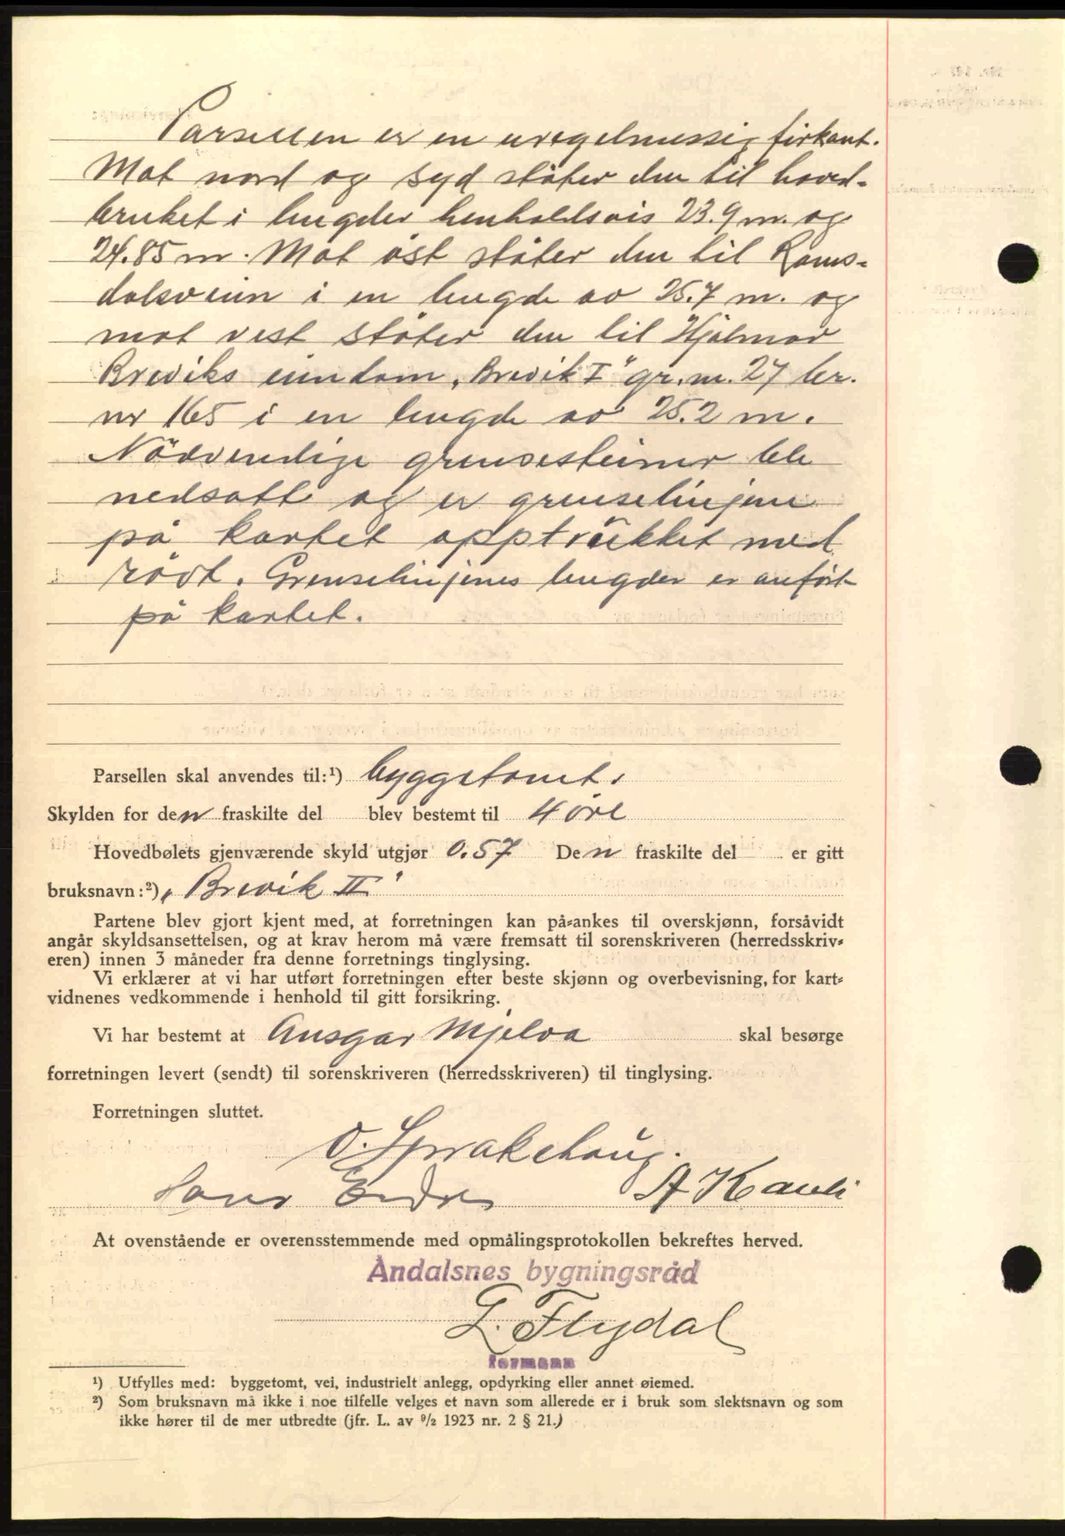 Parsellen er en uregelmessig firkant.
Mot nord og syd støter den til hoved-
bruket i lengder henholdsvis 23.9 m. og
24.85 m. Mot øst støter den til Roms-
dalsveien i en lengde av 25.7 m. og
mot vest støter den til Hjalmar
Breviks eiendom „Brevik I" gr.nr. 27 br.
nr 165 i en lengde av 25.2 m.
Nödvendige grensesteiner ble
nedsatt og er grenselinjene
på kartet opptrukket med
rödt. Grenselinjenes lengder er anført
på kartet.
Parsellen skal anvendes til:¹) byggetomt.
Skylden for den fraskilte del blev bestemt til 4 øre
Hovedbølets gjenværende skyld utgjør 0.57 Den fraskilte del er gitt
bruksnavn:²) „Brevik II"
Partene blev gjort kjent med, at forretningen kan på-ankes til overskjønn, forsåvidt
angår skyldsansettelsen, og at krav herom må være fremsatt til sorenskriveren (herredsskriv-
eren) innen 3 måneder fra denne forretnings tinglysing.
Vi erklærer at vi har utført forretningen efter beste skjønn og overbevisning, for kart-
vidnenes vedkommende i henhold til gitt forsikring.
Vi har bestemt at Ansgar Mjelva skal besørge
forretningen levert (sendt) til sorenskriveren (herredsskriveren) til tinglysing.
Forretningen sluttet.
O. Sprakehaug.
Hans A Kavli
At ovenstående er overensstemmende med opmålingsprotokollen bekreftes herved.
Åndalsnes bygningsråd
L. Flydal
formann
¹) Utfylles med: byggetomt, vei, industrielt anlegg, opdyrking eller annet øiemed.
²) Som bruksnavn må ikke i noe tilfelle velges et navn som allerede er i bruk som slektsnavn og som
ikke hører til de mer utbredte (jfr. L. av 9/2 1923 nr. 2 § 21.)